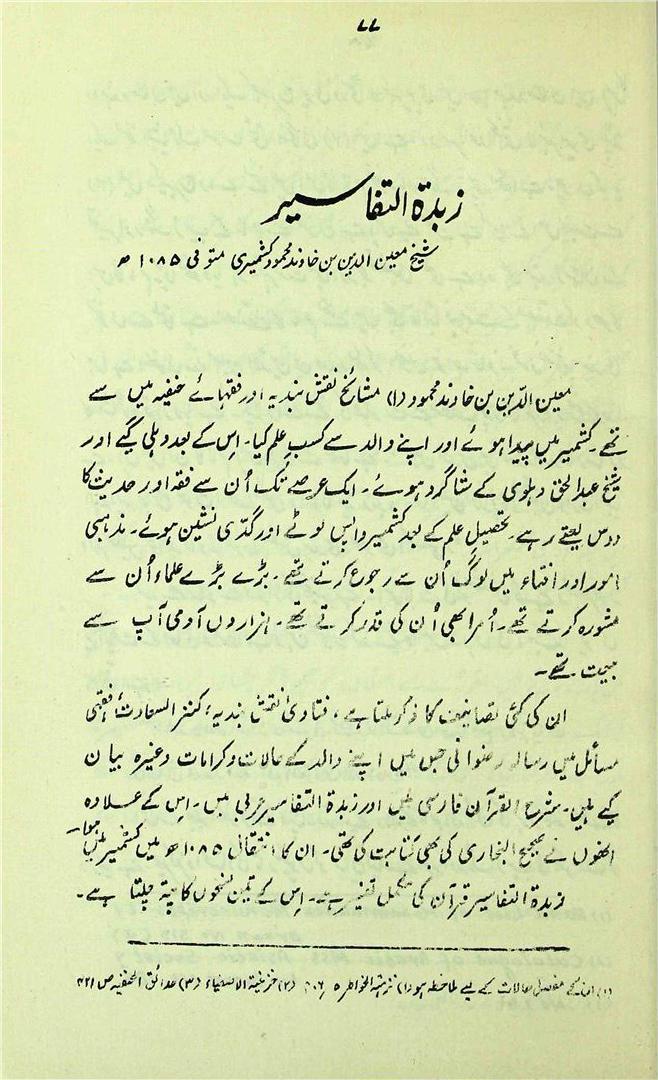 ۷۷
زبدۃ التفاسیر
شیخ معین الدین بن خاوند محمود کشمیری متوفی ۱۰۸۵ ھ
معین الدّین بن خاوند محمود (۱) مشائخ نقش بندیہ اور فقہائے حنفیہ میں سے
تھے۔ کشمیر میں پیدا ہوئے اور اپنے والد سے کسب علم کیا۔ اس کے بعد دہلی گیے اور
شیخ عبدالحق دہلوی کے شاگرد ہوئے۔ ایک عرصے تک اُن سے فقہ اور حدیث کا
درس لیتے رہے۔ تحصیل علم کے بعد کشمیر واپس لوٹے اور گدّی نشین ہوئے۔ مذہبی
امور اور افتاء میں لوگ اُن سے رجوع کرتے تھے۔ بڑے بڑے علماء اُن سے
مشورہ کرتے تھے۔ اُمرا بھی اُن کی قدر کرتے تھے۔ ہزاروں آدمی آپ سے
بیعت تھے۔
ان کی کئی تصانیف کا ذکر ملتا ہے، فتاویٰ نقش بندیہ، کنز السعادت، فقہی
مسائل میں رسالہ رضوانی جس میں اپنے والد کے حالات و کرامات وغیرہ بیان
کیے ہیں۔ شرح القرآن فارسی میں اور زبدۃ التفاسیر عربی میں۔ اس کے علاوہ
انھوں نے صحیح البخاری کی بھی کتابت کی تھی۔ ان کا انتقال ۱۰۸۵ ھ میں کشمیر میں ہوا۔
زبدۃ التفاسیر قرآن کی مکمل تفسیر ہے۔ اس کے تین نسخوں کا پتہ چلتا ہے۔
(۱) ان کے مفصل حالات کے لیے ملاحظہ ہو (۱) نزہۃ الخواطر ۵ (۲) خزینۃ الاصفیاء (۳) حدائق الحنفیہ ص ۴۲۱